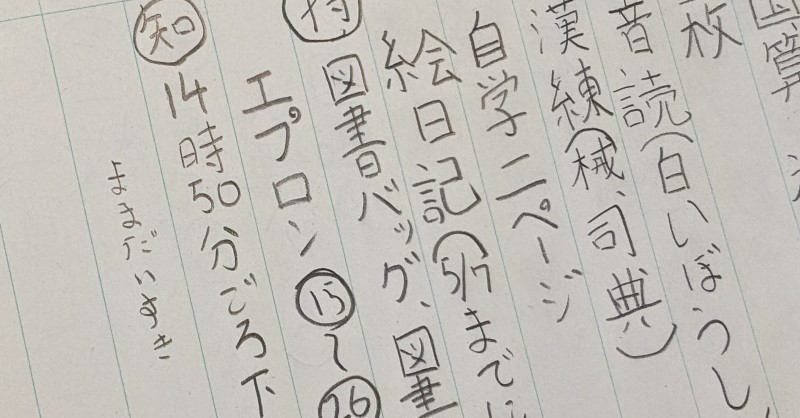 国算
枚
音読(白いぼうし
漢練(械、司典)
自学二ページ
絵日記(5/7までに
持 図書バッグ、図書
エプロン⑮〜㉖
知 14時50分ごろ下
ままだいすき